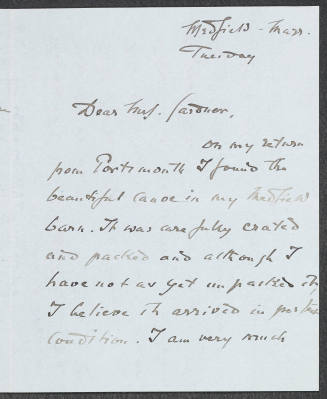 Medfield - Mass.
Tuesday
Dear Mrs. Gardner,
On my return
from Portsmouth I found the
beautiful canoe in my Medfield
barn. It was carefully crated
and packed and although I
have not as yet unpacked it,
I believe it arrived in perfect
condition. I am very much